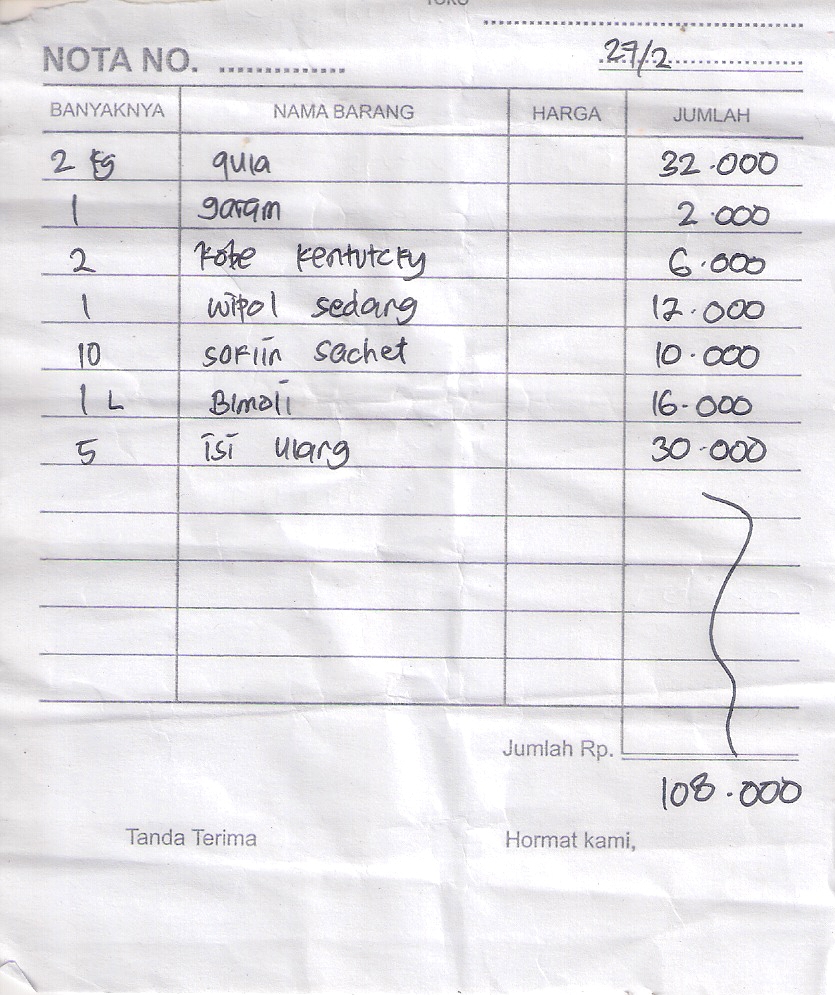 TOKO
NOTA NO. .............. 27/2
BANYAKNYA NAMA BARANG HARGA JUMLAH
2 kg gula 32.000
1 garam 2.000
2 kobe kentutcky 6.000
1 wipol sedang 12.000
10 soklin sachet 10.000
1 L Bimoli 16.000
5 isi ulang 30.000
Jumlah Rp.
108.000
Tanda Terima Hormat kami,